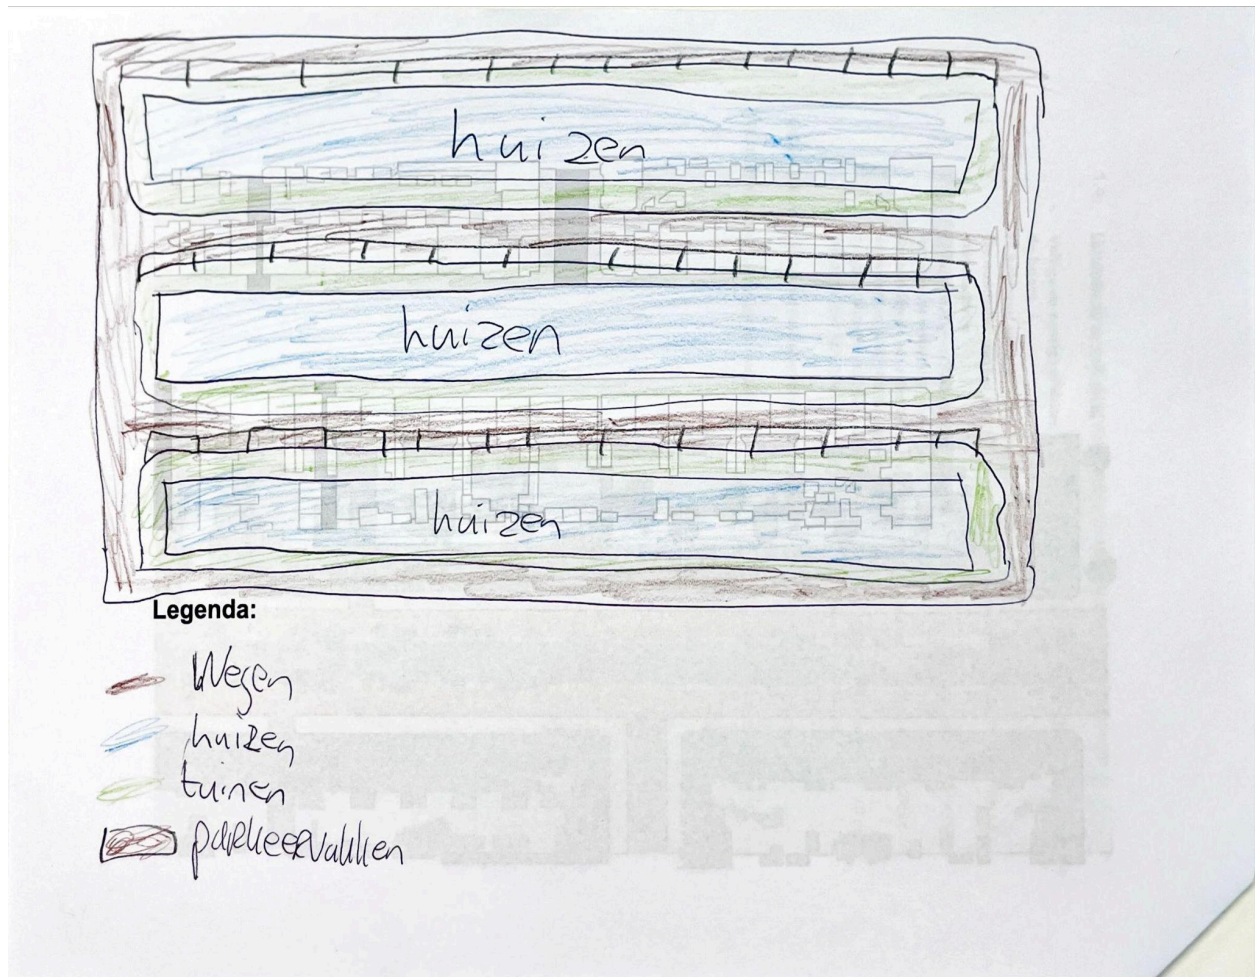 huizen
huizen
huizen
Legenda:
Wegen
huizen
tuinen
parkeervakken